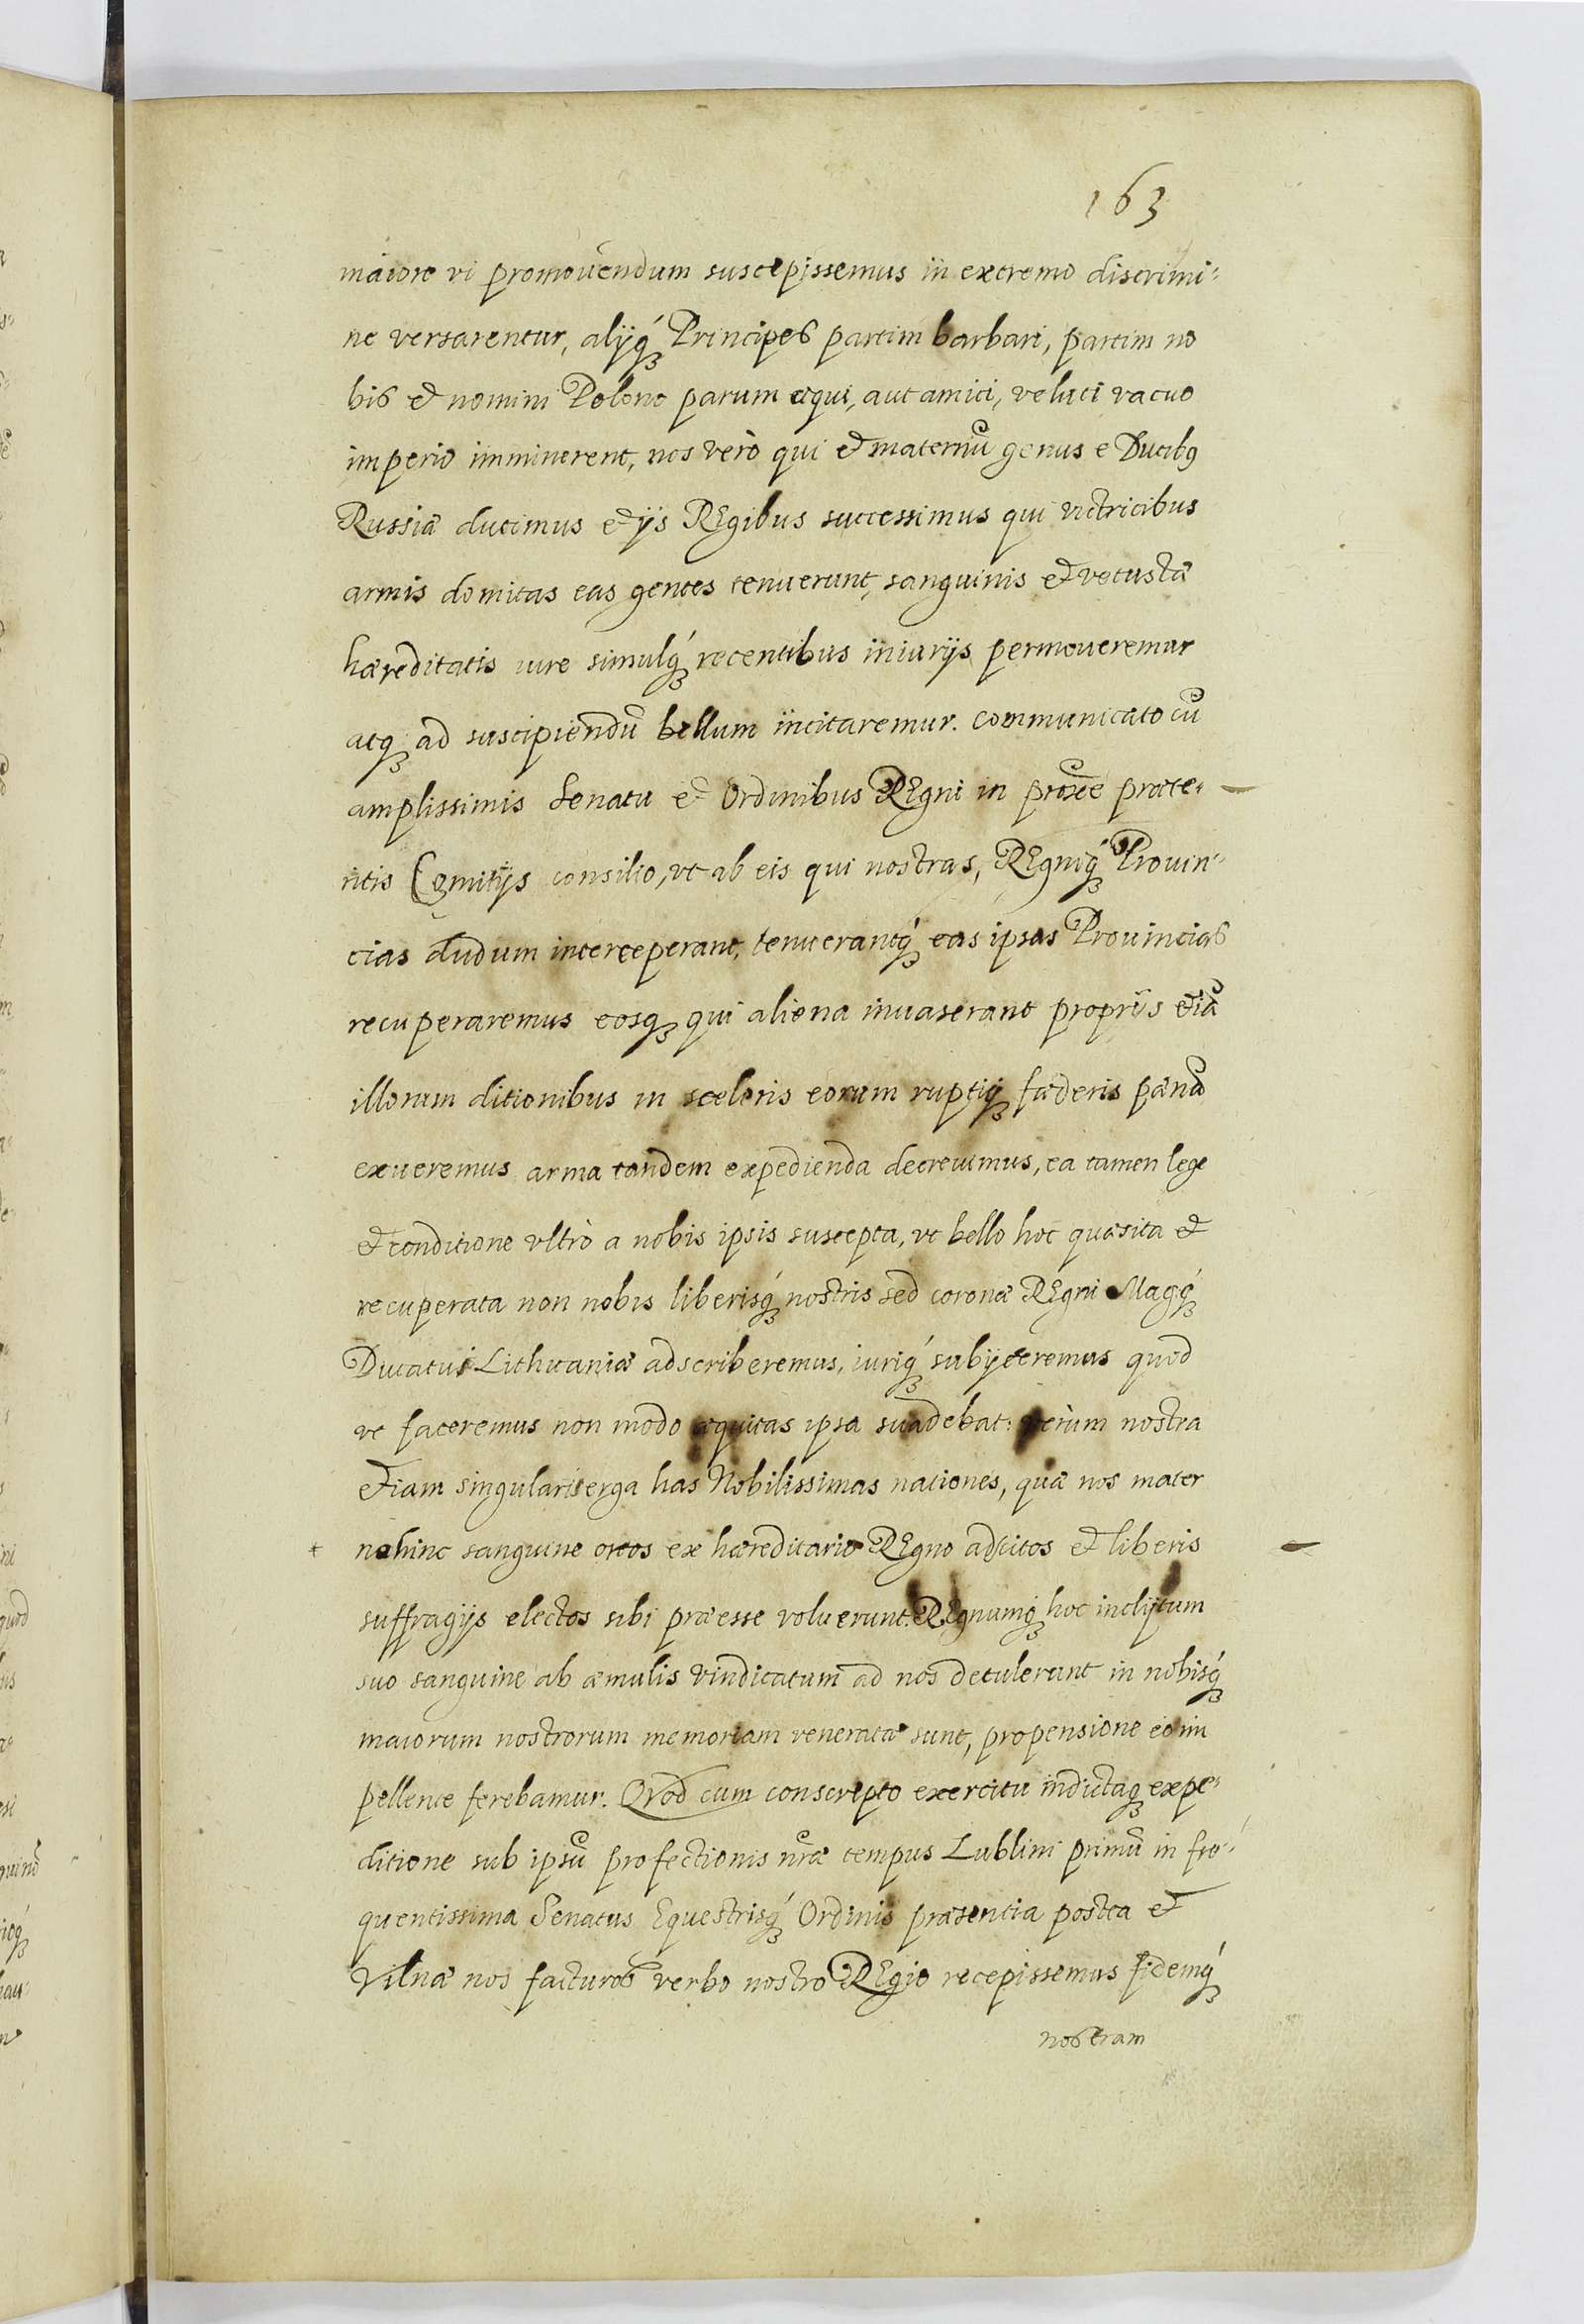 163
maiore vi promouendum suscepissemus in extremo discrimi-
ne versarentur, alijq́ Principes partim barbari, partim no
bis et nomini Polono parum æqui, aut amici, veluti vacuo
imperio imminerent, nos verò qui et maternũ genus e Ducibꝰ
Russiæ ducimus et ijs REgibus successimus qui victricibus
armis domitas eas gentes tenuerunt, sanguinis et vetustæ
hæreditatis iure simulq́ recentibus iniurijs permoueremur
atq ad suscipiendũ bellum incitaremur. Communicato cũ
amplissimis Senatu et Ordinibus REgni in proxẽ præte-
ritis Comitijs consilio, vt ab eis qui nostras, REgniq́ Prouin-
cias dudum interceperant, tenuerantq́ eas ipsas Prouincias
recuperaremus eosq qui aliena inuaserant proprijs etiã
illorum ditionibus in sceleris eorum ruptiq́ fæderis pænã
exueremus arma tandem expedienda decreuimus, ea tamen lege
et conditione vltrò a nobis ipsis suscepta, vt bello hoc quæsita et
recuperata non nobis liberisq́ nostris sed coronæ REgni Magq́
Ducatui Lithuaniæ adscriberemus, iuriq́ subijceremus quod
vt faceremus non modo æquitas ipsa suadebat: verùm nostra
etiam singularis erga has Nobilissimas nationes, quæ nos mater
no hinc sanguine ortos ex hæreditario REgno adscitos et liberis
suffragijs electos sibi præesse voluerunt. REgnumq́ hoc inclytum
suo sanguine ab æmulis vindicatum ad nos detulerunt in nobisq́
maiorum nostrorum memoriam veneratæ sunt, propensione eo im
pellente ferebamur. Quod cum conscripto exercitu indictaq expe-
ditione sub ipsũ profectionis nr̃æ tempus Lublini primũ in fre-
quentissima Senatus Equestrisq́ Ordinis præsentia postea et
Vilnæ nos facturos verbo nostro REgio recepissemus fidemq́
nostram